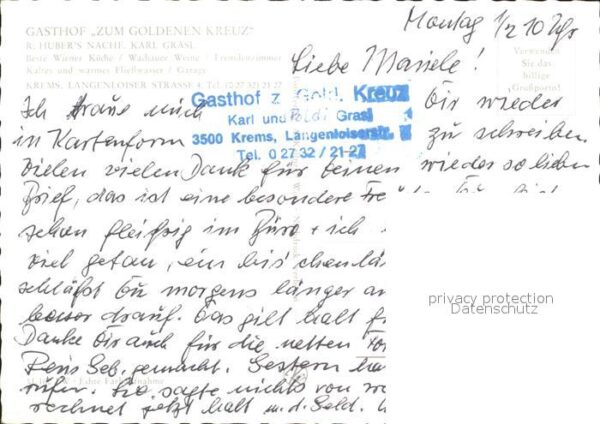 GASTHOF „ZUM GOLDENEN KREUZ"
R. HUBER'S NACHF. KARL GRASL
Beste Wiener Küche / Wachauer Weine / Fremdenzimmer
Kaltes und warmes Fließwasser / Garage
KREMS, LANGENLOISER STRASSE 4, Tel. 02732/21 27
Montag 1/2 10 Uhr
Verwenden
Sie das
billige
(Großporto)!
Liebe Mariele!
Gasthof z. Gold. Kreuz
Karl und Grasl
3500 Krems, Langenloiserstr.
Tel. 0 27 32 / 21-27
Ich traue mich Dir wieder
in Kartenform zu schreiben.
Vielen vielen Dank für Deinen wieder so lieben
Brief, das ist eine besondere
schon fleißig im Büro + ich
viel getan, ein bis'chen
schläfst Du morgens länger
drauf. Das gilt halt
Danke Dir auch für die netten
gemacht. Gestern
rufen. Sie sagte nichts von
rechnet jetzt halt m. d. Geld.
Echte
privacy protection
Datenschutz